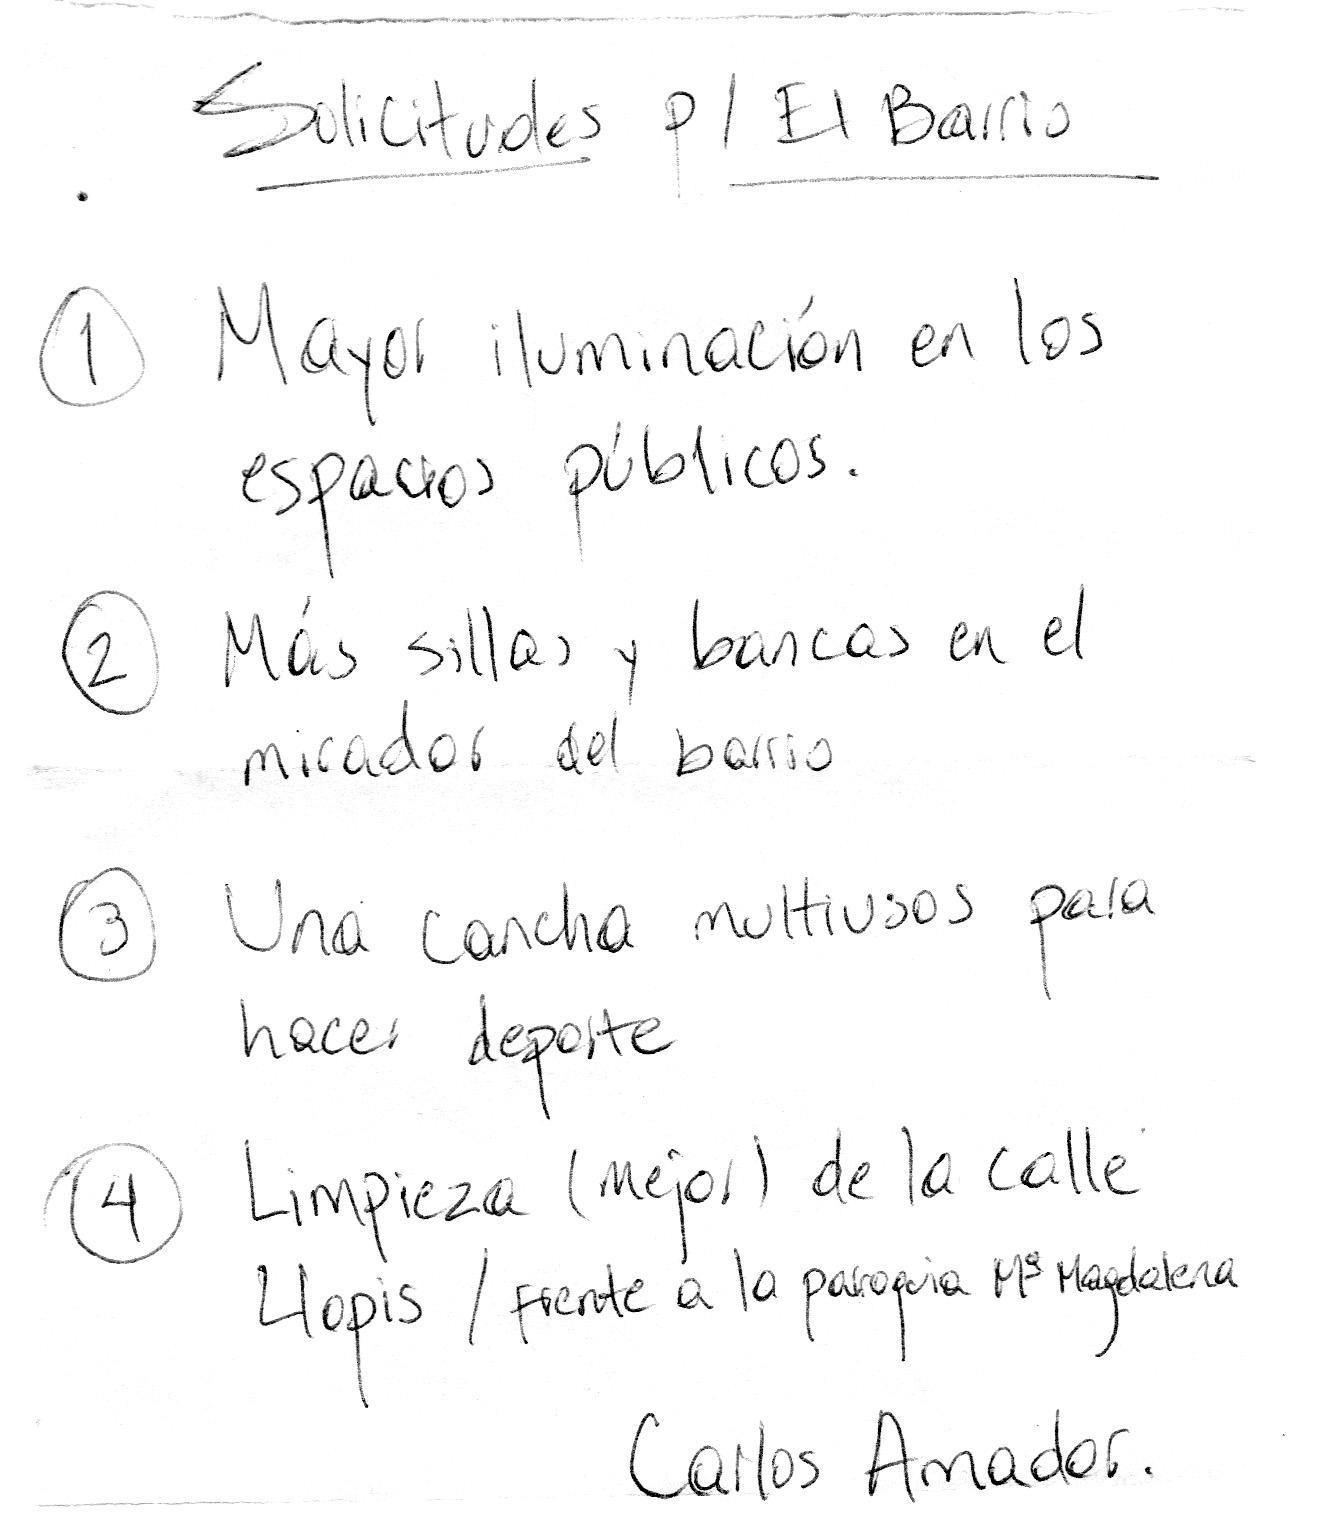 Solicitudes p/ El Barrio
1 Mayor iluminación en los
espacios públicos.
2 Más sillas y bancas en el
mirador del barrio
3 Una cancha multiusos para
hacer deporte
4 Limpieza (mejor) de la calle
Llopis / Frente a la paroquia Mª Magdalena
Carlos Amador.